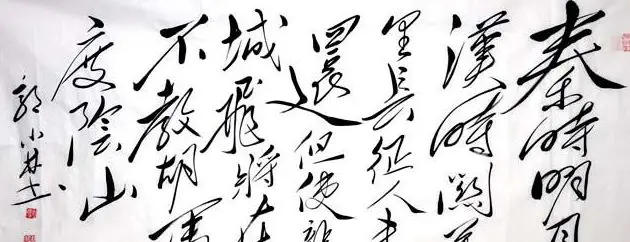 秦時明月
漢時關萬
里長征人未
還但使龍
城飛將在
不教胡馬
度陰山
郭小林